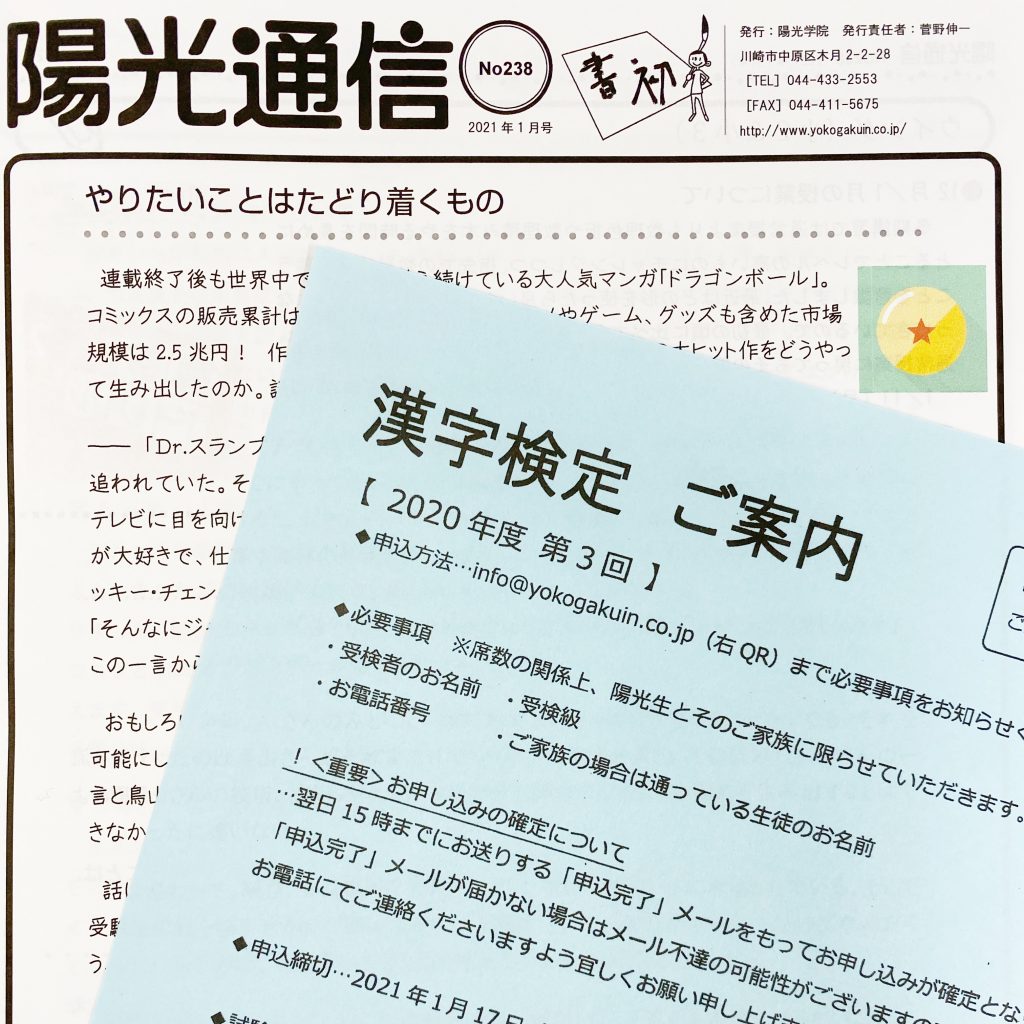 陽光通信
No238
2021年1月号
書初
発行：陽光学院　発行責任者：菅野伸一
川崎市中原区木月2-2-28
［TEL］044-433-2553
［FAX］044-411-5675
http://www.yokogakuin.co.jp/
やりたいことはたどり着くもの
連載終了後も世界中で
続けている大人気マンガ「ドラゴンボール」。
コミックスの販売累計は
やゲーム、グッズも含めた市場
規模は2.5兆円！　作
大ヒット作をどうやっ
て生み出したのか。
―― 「Dr.スランプ
追われていた。そ
テレビに目を向け
が大好きで、仕
ッキー・チェン
「そんなにジ
この一言から
おもしろ
可能にし
言と鳥山
きなか
話
受験
う
漢字検定　ご案内
【 2020年度 第3回 】
◆申込方法…info@yokogakuin.co.jp（右QR）まで必要事項をお知らせく
◆必要事項　※席数の関係上、陽光生とそのご家族に限らせていただきます。
・受検者のお名前　・受検級
・お電話番号　・ご家族の場合は通っている生徒のお名前
！＜重要＞お申し込みの確定について
…翌日15時までにお送りする「申込完了」メールをもってお申し込みが確定とな
「申込完了」メールが届かない場合はメール不達の可能性がございますの
お電話にてご連絡くださいますよう宜しくお願い申し上げま
◆申込締切…2021年1月17日